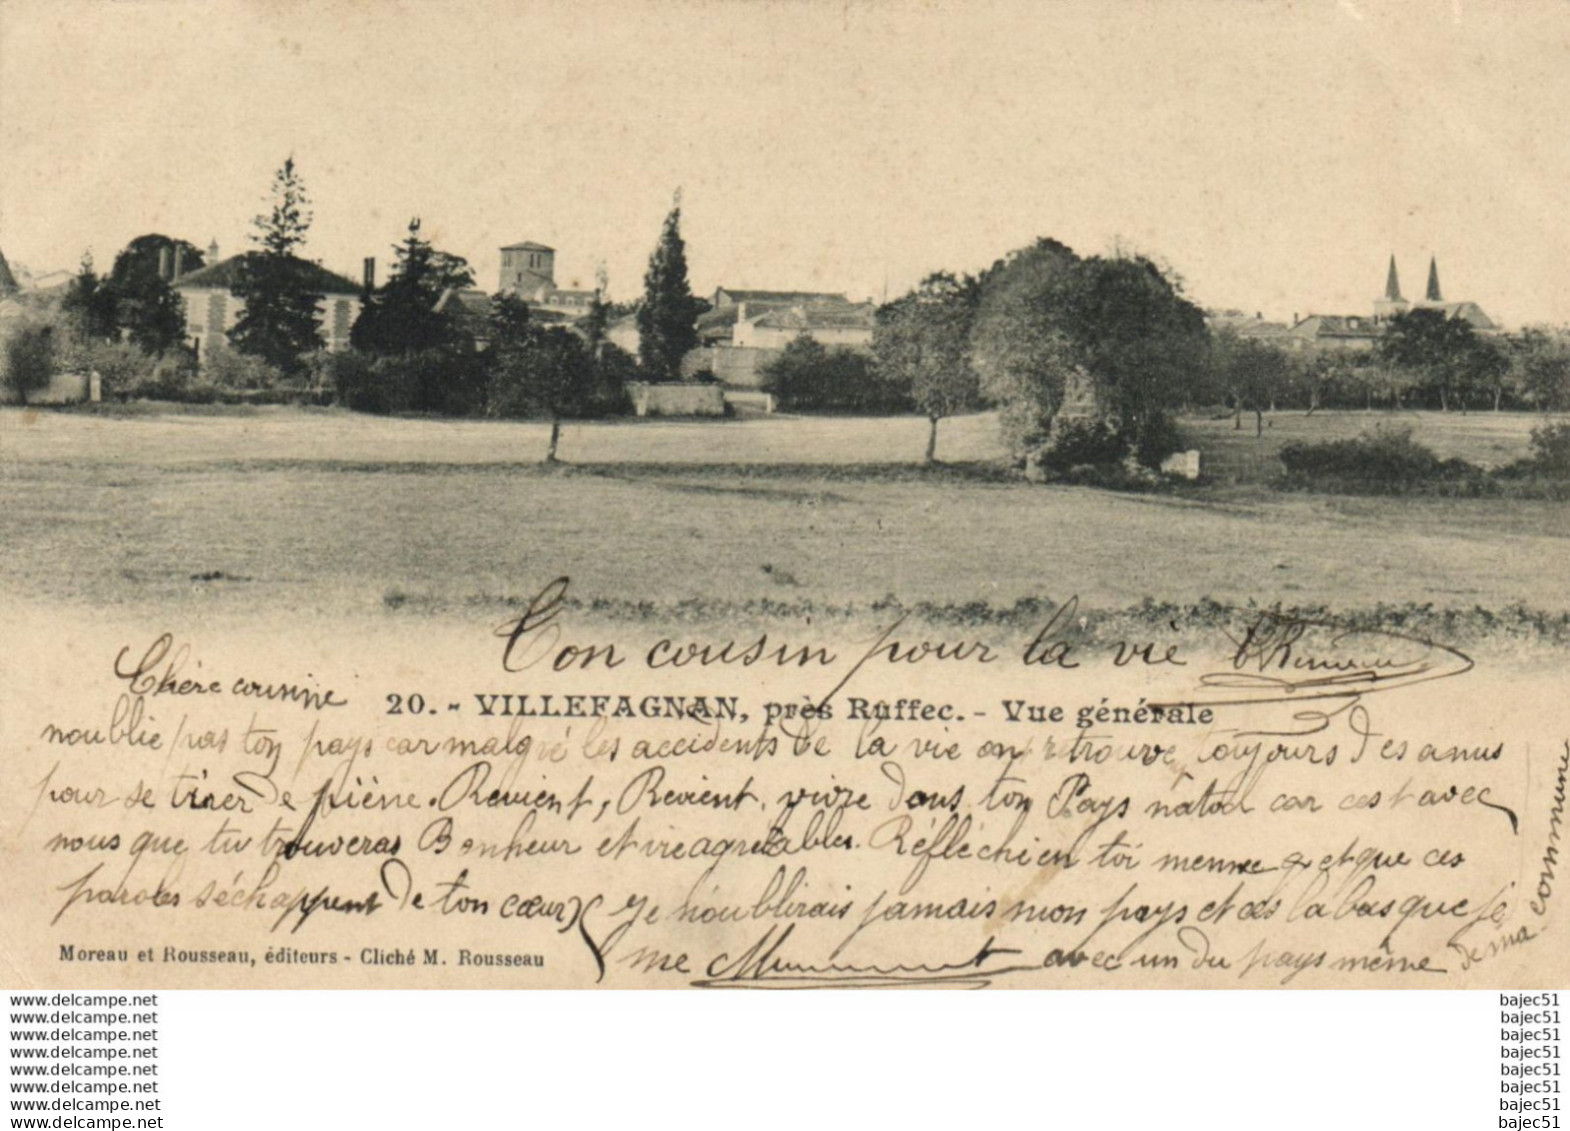 Ton cousin pour la vie
Chère cousine
20. - VILLEFAGNAN, près Ruffec. - Vue générale
noublie pas ton pays car malgré les accidents de la vie on retrouve toujours des amis
pour se tirer de piène. Revient, Revient, vivre dans ton Pays natal car cest avec
nous que tu trouveras Bonheur et vie agréable. Réfléchi en toi menne et que ces
paroles séchappent de ton cœur Je noublirais jamais mon pays et dès la bas que je
me avec un du pays même de ma commune
Moreau et Rousseau, éditeurs - Cliché M. Rousseau
www.delcampe.net bajec51
www.delcampe.net bajec51
www.delcampe.net bajec51
www.delcampe.net bajec51
www.delcampe.net bajec51
www.delcampe.net bajec51
www.delcampe.net bajec51
www.delcampe.net bajec51